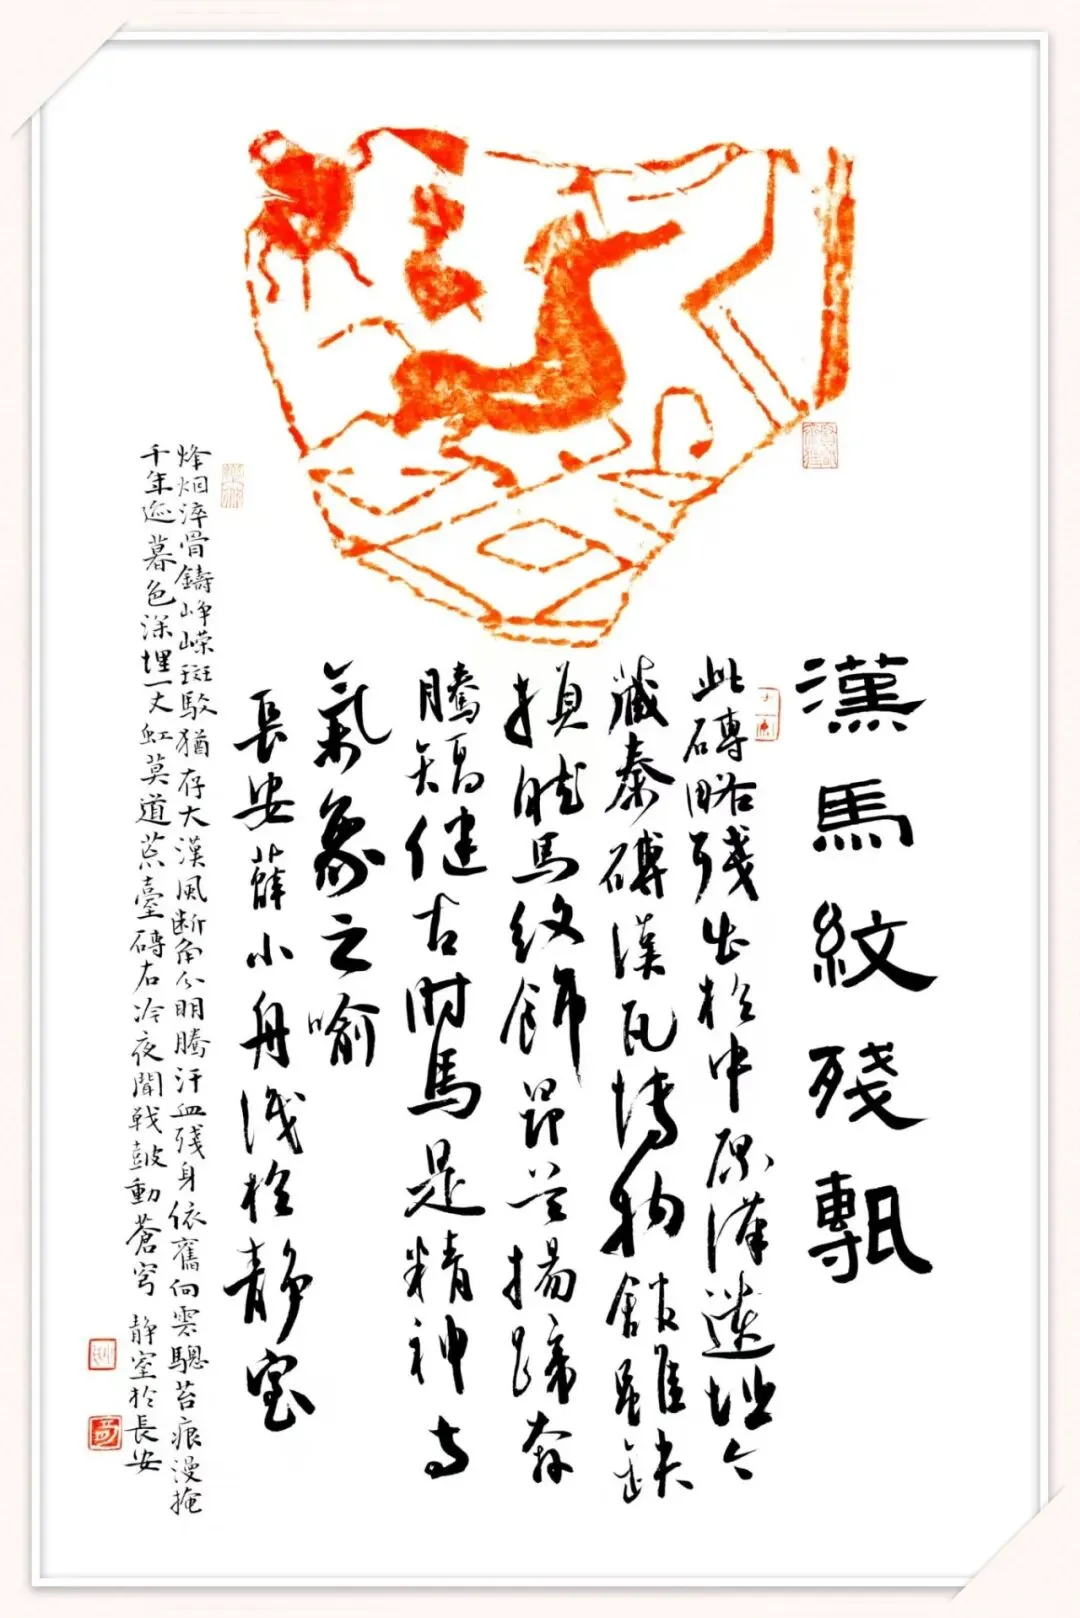 漢馬紋殘塼
此磚略殘出於中原漢遺址今
藏秦磚漢瓦博物館雖缺
損然馬紋飾昂首揚蹄奔
騰矯健古時馬是精神与
氣象之喻
長安薛小舟識於静室
烽烟淬骨鑄峥嵘斑駁猶存大漢風断角分明騰汗血殘身依舊向雲驄苔痕漫掩
千年迹暮色深埋一丈虹莫道荒臺磚石冷夜聞戰鼓動蒼穹 静室於長安